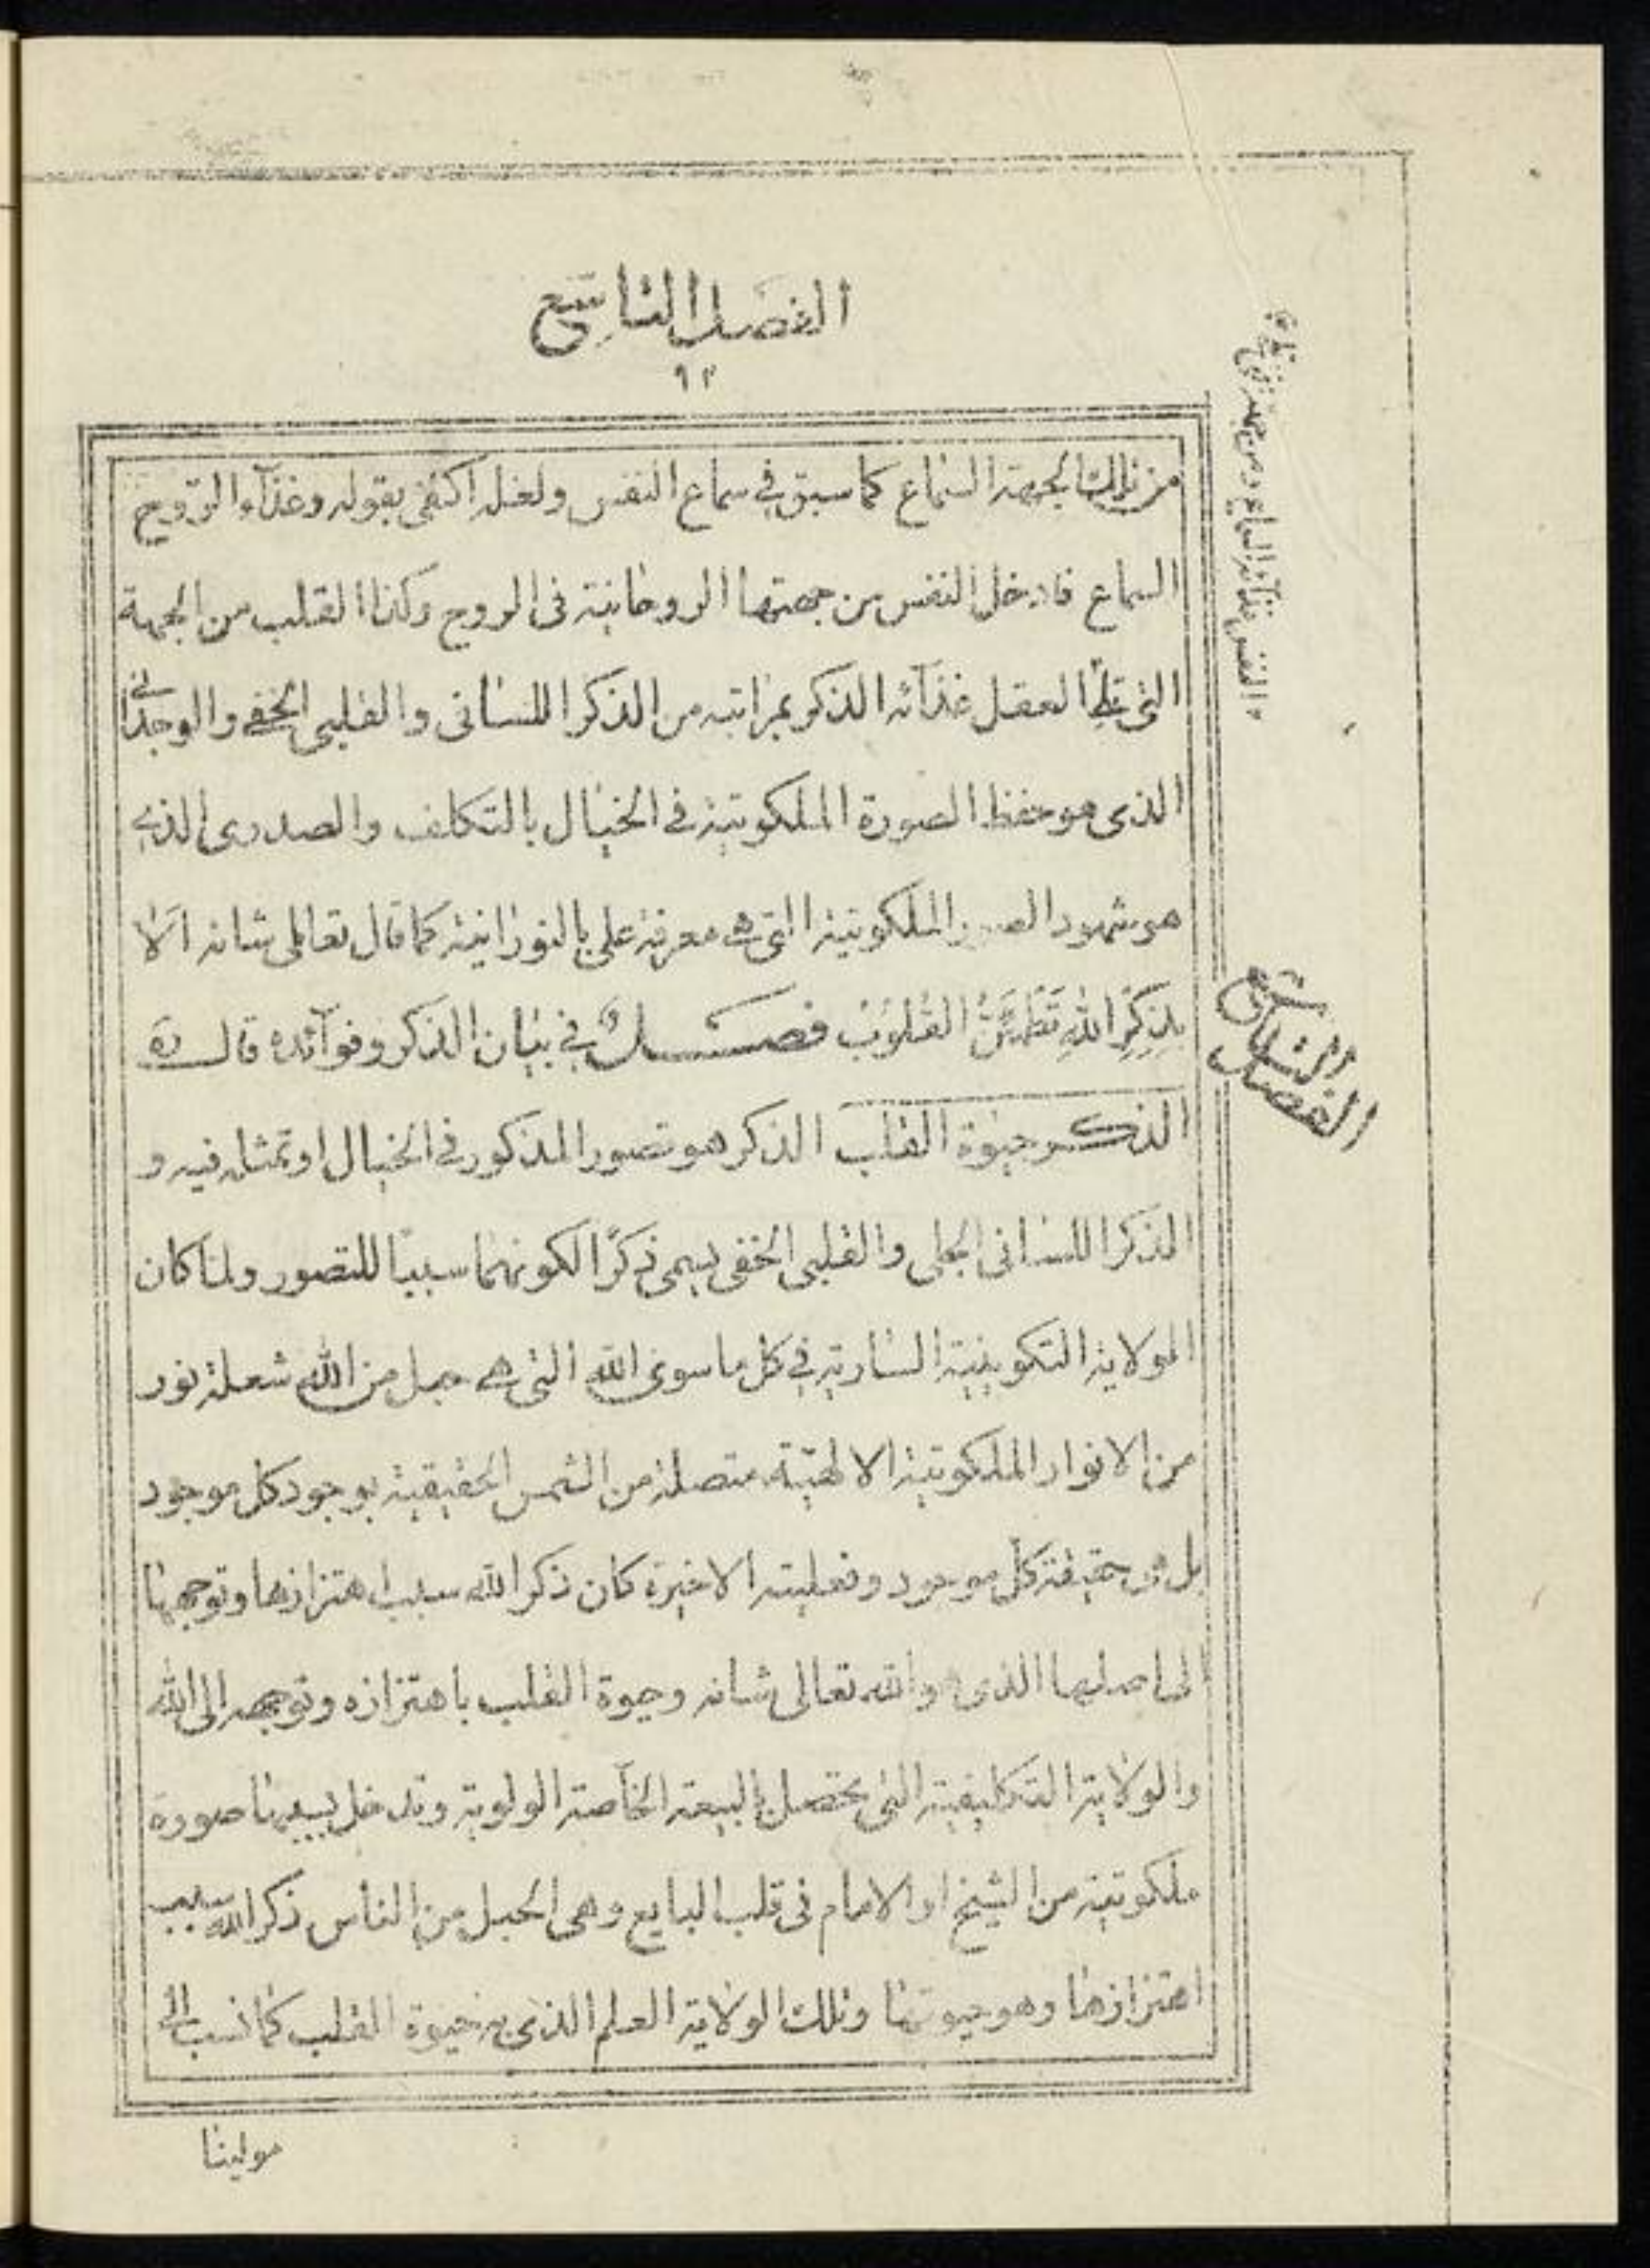 الفصل التاسع
٩٢
من تلك الجهة السماع كما سبق في سماع النفس ولعله اكتفى بقوله وغذآء الروح
السماع فادخل النفس من جهتها الروحانية فى الروح وكذا القلب من الجهة
التى تلى العقل غذآئه الذكر بمراتبه من الذكر اللسانى والقلبى الخفى والوجدانى
الذى هو حفظ الصورة الملكوتية فى الخيال بالتكلف والصدرى الذى
هو شهود الصور الملكوتية التى هى معرفة على بالنورانية كما قال تعالى شانه اَلا
بِذِكْرِ اللهِ تَطْمَئِنُّ القُلُوبُ فصــلٌ فى بيان الذكر وفوآئده قال ره
الذكر حيوة القلب الذكر هو تصور المذكور فى الخيال او تمثله فيه و
الذكر اللسانى الجلى والقلبى الخفى يسمى ذكرًا لكونهما سببًا للتصور ولما كان
الولاية التكوينية السارية فى كل ما سوى الله التى هى حبل من الله شعلة نور
من الانوار الملكوتية الالهية متصلة من الشمس الحقيقية بوجود كل موجود
بل هى حقيقة كل موجود وفعليته الاخيرة كان ذكر الله سبب اهتزازها وتوجهها
الى اصلها الذى هو الله تعالى شانه وحيوة القلب باهتزازه وتوجهه الى الله
والولاية التكليفية التى تحصل بالبيعة الخآصة الولوية وتدخل بسببها صورة
ملكوتية من الشيخ او الامام فى قلب البايع وهى الحبل من الناس ذكر الله سبب
اهتزازها وهو حيوتها وتلك الولاية العلم الذى به حيوة القلب كما نسب الى
مولينا
النفس غذآئه السماع ومن جهة
الفصل التاسع